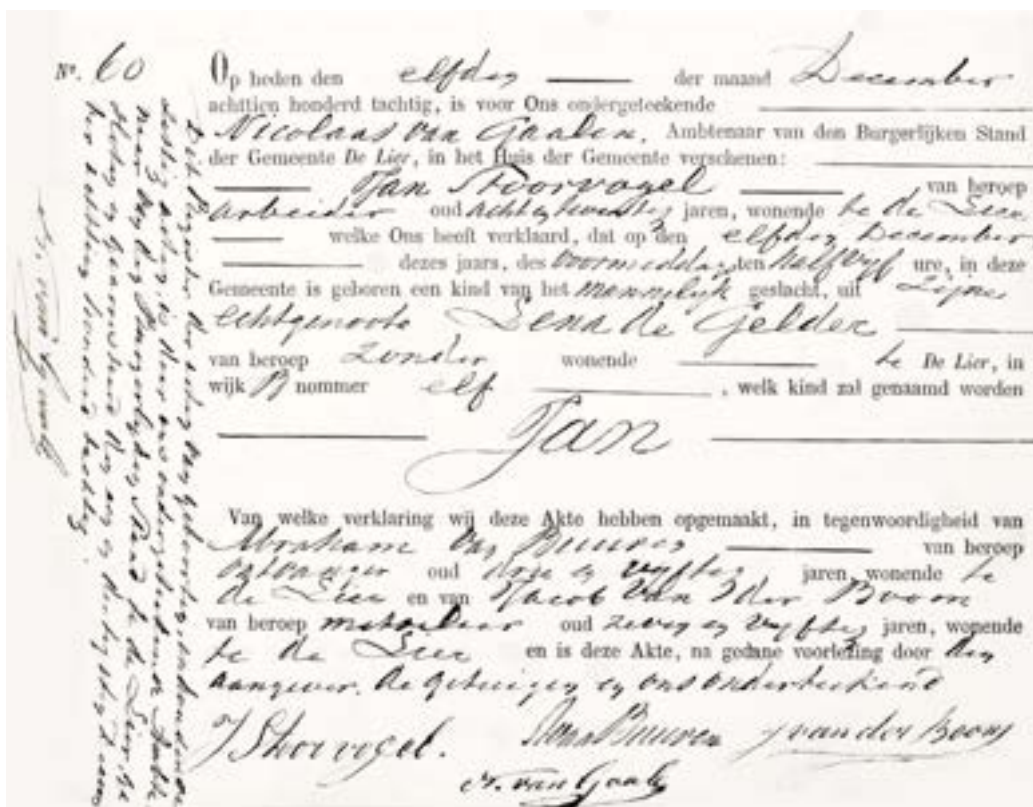 No. 60
Op heden den elfden der maand December
achttien honderd tachtig, is voor Ons ondergeteekende
Nicolaas van Gaalen, Ambtenaar van den Burgerlijken Stand
der Gemeente De Lier, in het Huis der Gemeente verschenen:
Jan Stoorvogel van beroep
arbeider oud acht en twintig jaren, wonende te de Lier
welke Ons heeft verklaard, dat op den elfden December
dezes jaars, des voormiddags ten half vijf ure, in deze
Gemeente is geboren een kind van het mannelijk geslacht, uit zijne
echtgenoote Lena de Gelder
van beroep zonder wonende te De Lier, in
wijk B nommer elf, welk kind zal genaamd worden
Jan
Van welke verklaring wij deze Akte hebben opgemaakt, in tegenwoordigheid van
Abraham van Buuren van beroep
ontvanger oud drie en vyftig jaren, wonende te
de Lier en van Jacob van der Boom
van beroep metselaar oud zeven en vyftig jaren, wonende
te de Lier en is deze Akte, na gedane voorlezing door den
aangever, de getuigen en ons onderteekend
J Stoorvogel. van Buuren J van der Boom
N. van Gaalen
Dit Register der akten van geboorten, inhoudende
zestig akten, is door ons ondergeteekende Ambte
naar van den Burgerlijken Stand te de Lier, ge
sloten en gearresteerd den een en dertig December
achttien honderd tachtig.
N. van Gaalen